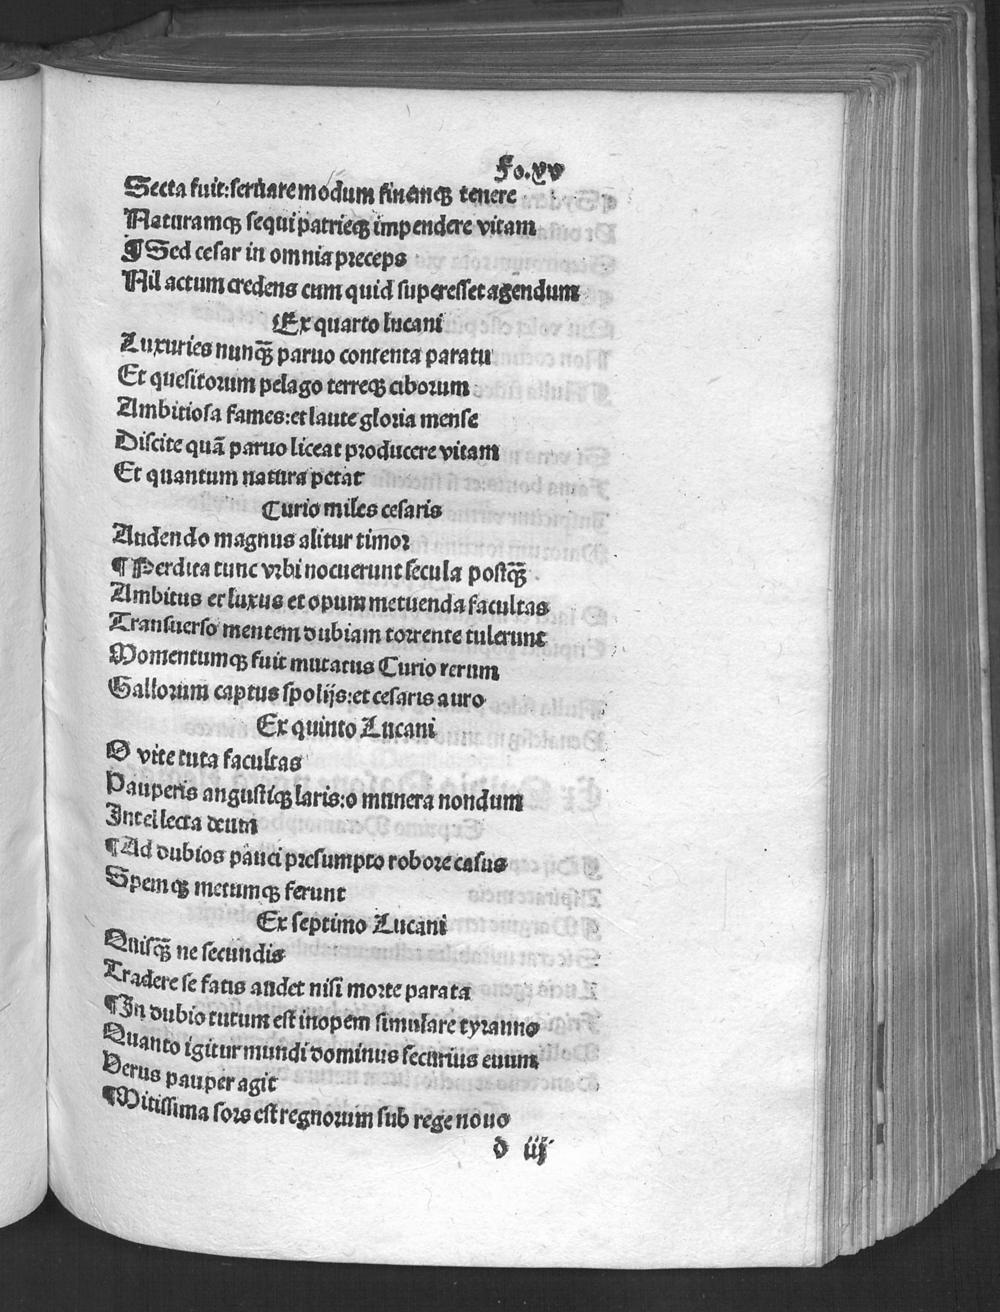 Fo.xv
Secta fuit:seruare modum finemqꝫ tenere
Naturamqꝫ sequi patrieqꝫ impendere vitam
¶ Sed cesar in omnia preceps
Nil actum credens cum quid superesset agendum
Ex quarto lucani
Luxuries nunqꝫ̄ paruo contenta paratu
Et quesitorum pelago terreqꝫ ciborum
Ambitiosa fames:et laute gloria mense
Discite quā paruo liceat producere vitam
Et quantum natura petat
Curio miles cesaris
Audendo magnus alitur timor
¶ Perdita tunc vrbi nocuerunt secula postqꝫ̄
Ambitus et luxus et opum metuenda facultas
Transuerso mentem dubiam torrente tulerunt
Momentumqꝫ fuit mutatus Curio rerum
Gallorum captus spolijs:et cesaris auro
Ex quinto Lucani
O vite tuta facultas
Pauperis angustiqꝫ laris:o munera nondum
Intellecta deum
¶ Ad dubios pauci presumpto robore casus
Spemqꝫ metumqꝫ ferunt
Ex septimo Lucani
Quisqꝫ̄ ne secundis
Tradere se fatis audet nisi morte parata
¶ In dubio tutum est inopem simulare tyranno
Quanto igitur mundi dominus securius euum
Verus pauper agit
¶ Mitissima sors est regnorum sub rege nouo
d iij